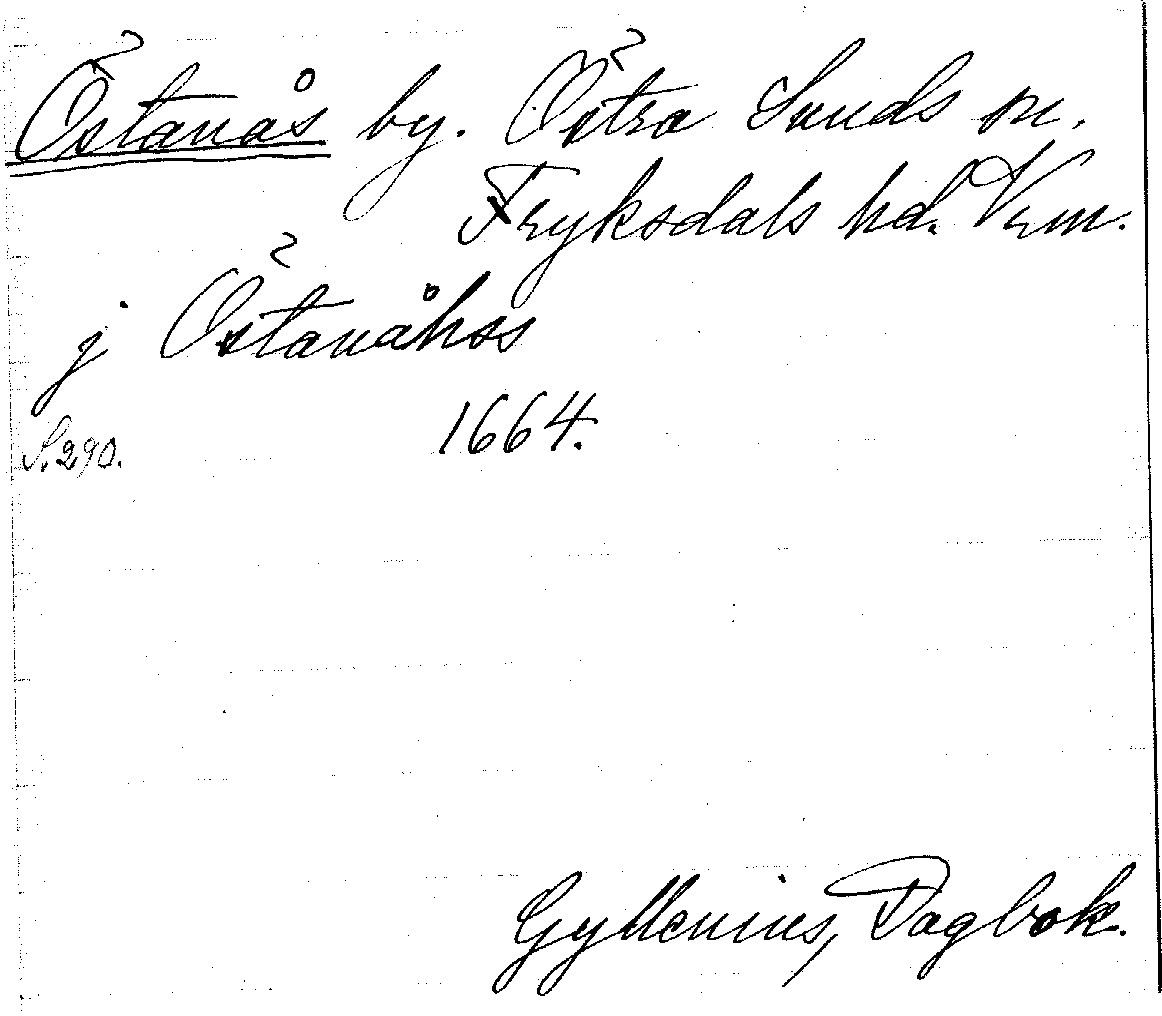 Östanås by. Östra Sunds sn.
Fryksdals hd. Vrm.
j Östanåhss
S. 290. 1664.
Gyllenius, Dagbok.